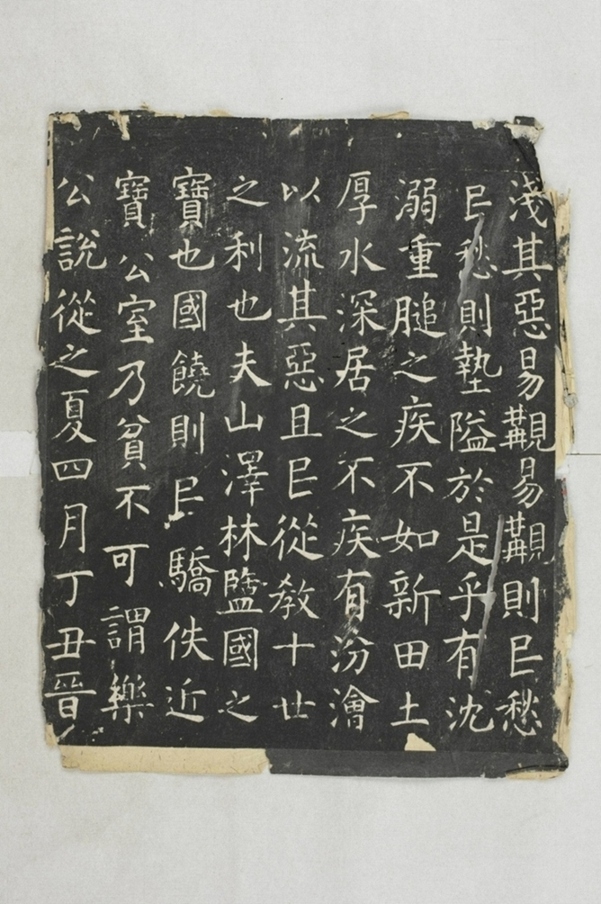 淺其惡易覯易覯則民愁
民愁則墊隘於是乎有沈
溺重膇之疾不如新田土
厚水深居之不疾有汾澮
以流其惡且民從教十世
之利也夫山澤林鹽國之
寶也國饒則民驕佚近
寶公室乃貧不可謂樂
公說從之夏四月丁丑晉